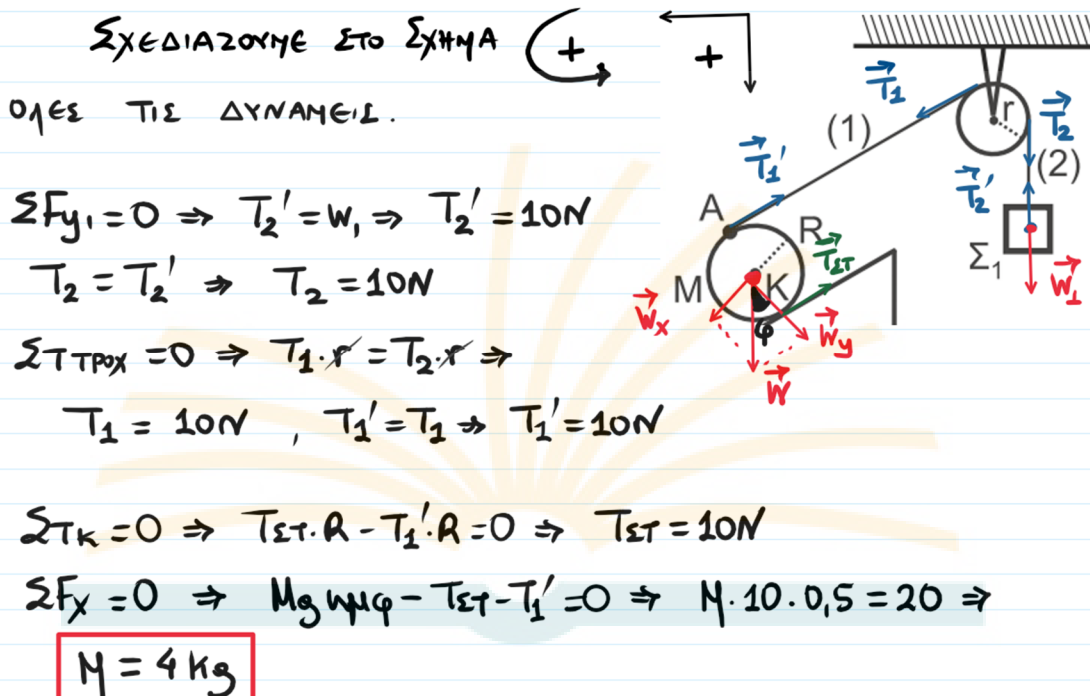 ΣΧΕΔΙΑΖΟΥΜΕ ΣΤΟ ΣΧΗΜΑ
ΟΛΕΣ ΤΙΣ ΔΥΝΑΜΕΙΣ.
+
+
ΣFy₁ = 0 ⇒ T₂' = W₁ ⇒ T₂' = 10N
T₂ = T₂' ⇒ T₂ = 10N
Στ ΤΡΟΧ = 0 ⇒ T₁·r = T₂·r ⇒
T₁ = 10N , T₁' = T₁ ⇒ T₁' = 10N
Στκ = 0 ⇒ Tστ·R - T₁'·R = 0 ⇒ Tστ = 10N
ΣFx = 0 ⇒ Mg ημφ - Tστ - T₁' = 0 ⇒ M·10·0,5 = 20 ⇒
M = 4 kg
T₁
r
T₂
(1)
(2)
T₁'
T₂'
A
R
Tστ
Σ₁
W₁
M
K
Wx
φ
Wy
W